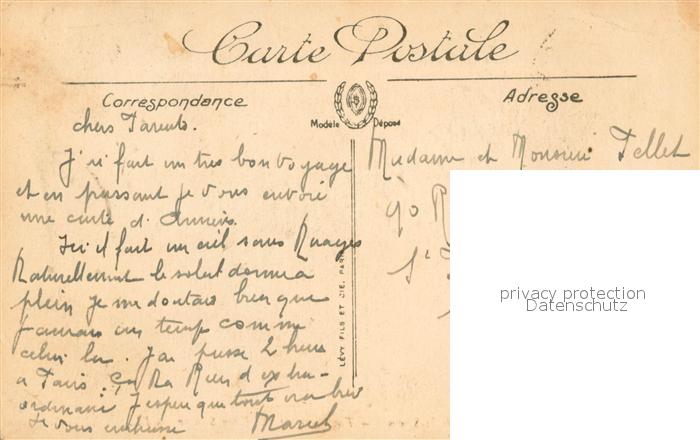 Carte Postale
Correspondance
Adresse
Modèle Déposé
chers Parents.
J'ai fait un tres bon voyage
et en passant je vous envoie
une carte d'
Ici il fait un ciel sans Nuages
Naturellement le soleil donne a
plein je me doutais bien que
j'aurais un temps comme
celui la. J'ai passé 2 heures
a Paris. Ça n'a Rien d'extra-
ordinaire J'espere que tout ira bien
Je vous embrasse
Marcel
LÉVY FILS ET CIE, PARIS
Madame et Monsieur Pellet
90 R
St
privacy protection
Datenschutz